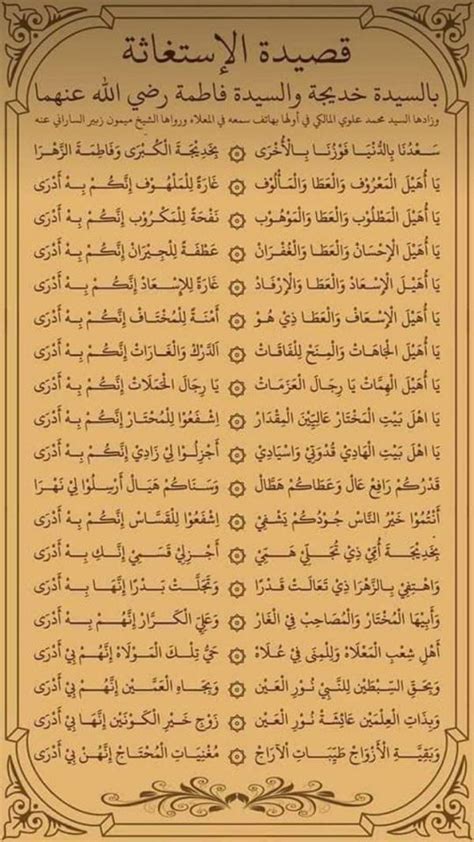 قصيدة الإستغاثة
بالسيدة خديجة والسيدة فاطمة رضي الله عنهما
وزادها السيد محمد علوي المالكي في أولها بهاتف سمعه في المعلاء ورواها الشيخ ميمون زبير الساراني عنه
سَعْدُنَا بِالدُّنْيَا فَوْزُنَا بِالْأُخْرَى ۞ بِخَدِيْجَةَ الْكُبْرَى وَفَاطِمَةَ الزَّهْرَا
يَا أُهَيْلَ الْمَعْرُوْفِ وَالْعَطَا وَالْمَأْلُوْفِ ۞ غَارَةً لِلْمَلْهُوْفِ إِنَّكُمْ بِهْ أَدْرَى
يَا أُهَيْلَ الْمَطْلُوْبِ وَالْعَطَا وَالْمَوْهُوْبِ ۞ نَفْحَةً لِلْمَكْرُوْبِ إِنَّكُمْ بِهْ أَدْرَى
يَا أُهَيْلَ الْإِحْسَانِ وَالْعَطَا وَالْغُفْرَانِ ۞ عَطْفَةً لِلْجِيْرَانِ إِنَّكُمْ بِهْ أَدْرَى
يَا أُهَيْلَ الْإِسْعَادِ وَالْعَطَا وَالْإِرْفَادِ ۞ غَارَةً لِلْإِسْعَادِ إِنَّكُمْ بِهْ أَدْرَى
يَا أُهَيْلَ الْإِسْعَافِ وَالْعَطَا ذِي هُوْ ۞ أَمْنَةً لِلْمُخْتَافِ إِنَّكُمْ بِهْ أَدْرَى
يَا أُهَيْلَ الْجَاهَاتْ وَالْمِنَحْ لِلْفَاقَاتْ ۞ اَلدَّرَكْ وَالْغَارَاتْ إِنَّكُمْ بِهْ أَدْرَى
يَا أُهَيْلَ الْهِمَّاتْ يَا رِجَالَ الْعَزَمَاتْ ۞ يَا رِجَالَ الْحَمَلَاتْ إِنَّكُمْ بِهْ أَدْرَى
يَا اهْلَ بَيْتِ الْمُخْتَارِ عَالِيِّيْنَ الْمِقْدَارِ ۞ اِشْفَعُوْا لِلْمُحْتَارِ إِنَّكُمْ بِهْ أَدْرَى
يَا اهْلَ بَيْتِ الْهَادِيْ قُدْوَتِيْ وَاسْيَادِيْ ۞ أَجْزِلُوْا لِيْ زَادِيْ إِنَّكُمْ بِهْ أَدْرَى
قَدْرُكُمْ رَافِعْ عَالْ وَعَطَاكُمْ هَطَّالْ ۞ وَسَنَاكُمْ هَيَالْ أَرْسِلُوْا لِيْ نَهْرَا
أَنْتُمُوْا خَيْرُ النَّاسْ جُوْدُكُمْ يَشْفِيْ ۞ اِشْفَعُوْا لِلْقَسَّاسْ إِنَّكُمْ بِهْ أَدْرَى
بِخَدِيْجَةَ أُمِّي ذِيْ تُجَلِّيْ هَمِّيْ ۞ أَجْزِلِيْ قَسَمِيْ إِنَّكِ بِهْ أَدْرَى
وَاهْتِفِيْ بِالزَّهْرَا ذِيْ تَعَالَتْ قَدْرًا ۞ وَتَجَلَّتْ بَدْرًا إِنَّهَا بِهْ أَدْرَى
وَأَبِيْهَا الْمُخْتَارْ وَالْمُصَاحِبْ فِي الْغَارْ ۞ وَعَلِيِّ الْكَرَّارْ إِنَّهُمْ بِهْ أَدْرَى
أَهْلِ شِعْبِ الْمَعْلَاهْ وَلِلْمِنَى فِيْ عُلَاهْ ۞ حَيُّ تِلْكَ الْمَوْلَاهْ إِنَّهُمْ بِيْ أَدْرَى
وَبِحَقِّ السِّبْطَيْنِ لِلنَّبِيْ نُوْرِ الْعَيْنِ ۞ وَبِجَاهِ الْعَمَّيْنِ إِنَّهُمْ بِيْ أَدْرَى
وَبِذَاتِ الْعِلْمَيْنِ عَائِشَةْ نُوْرِ الْعَيْنِ ۞ زَوْجِ خَيْرِ الْكَوْنَيْنِ إِنَّهَا بِيْ أَدْرَى
وَبَقِيَّةِ الْأَزْوَاجْ طَيِّبَاتِ الْآرَاجْ ۞ مُغْنِيَاتِ الْمُحْتَاجْ إِنَّهُنْ بِيْ أَدْرَى